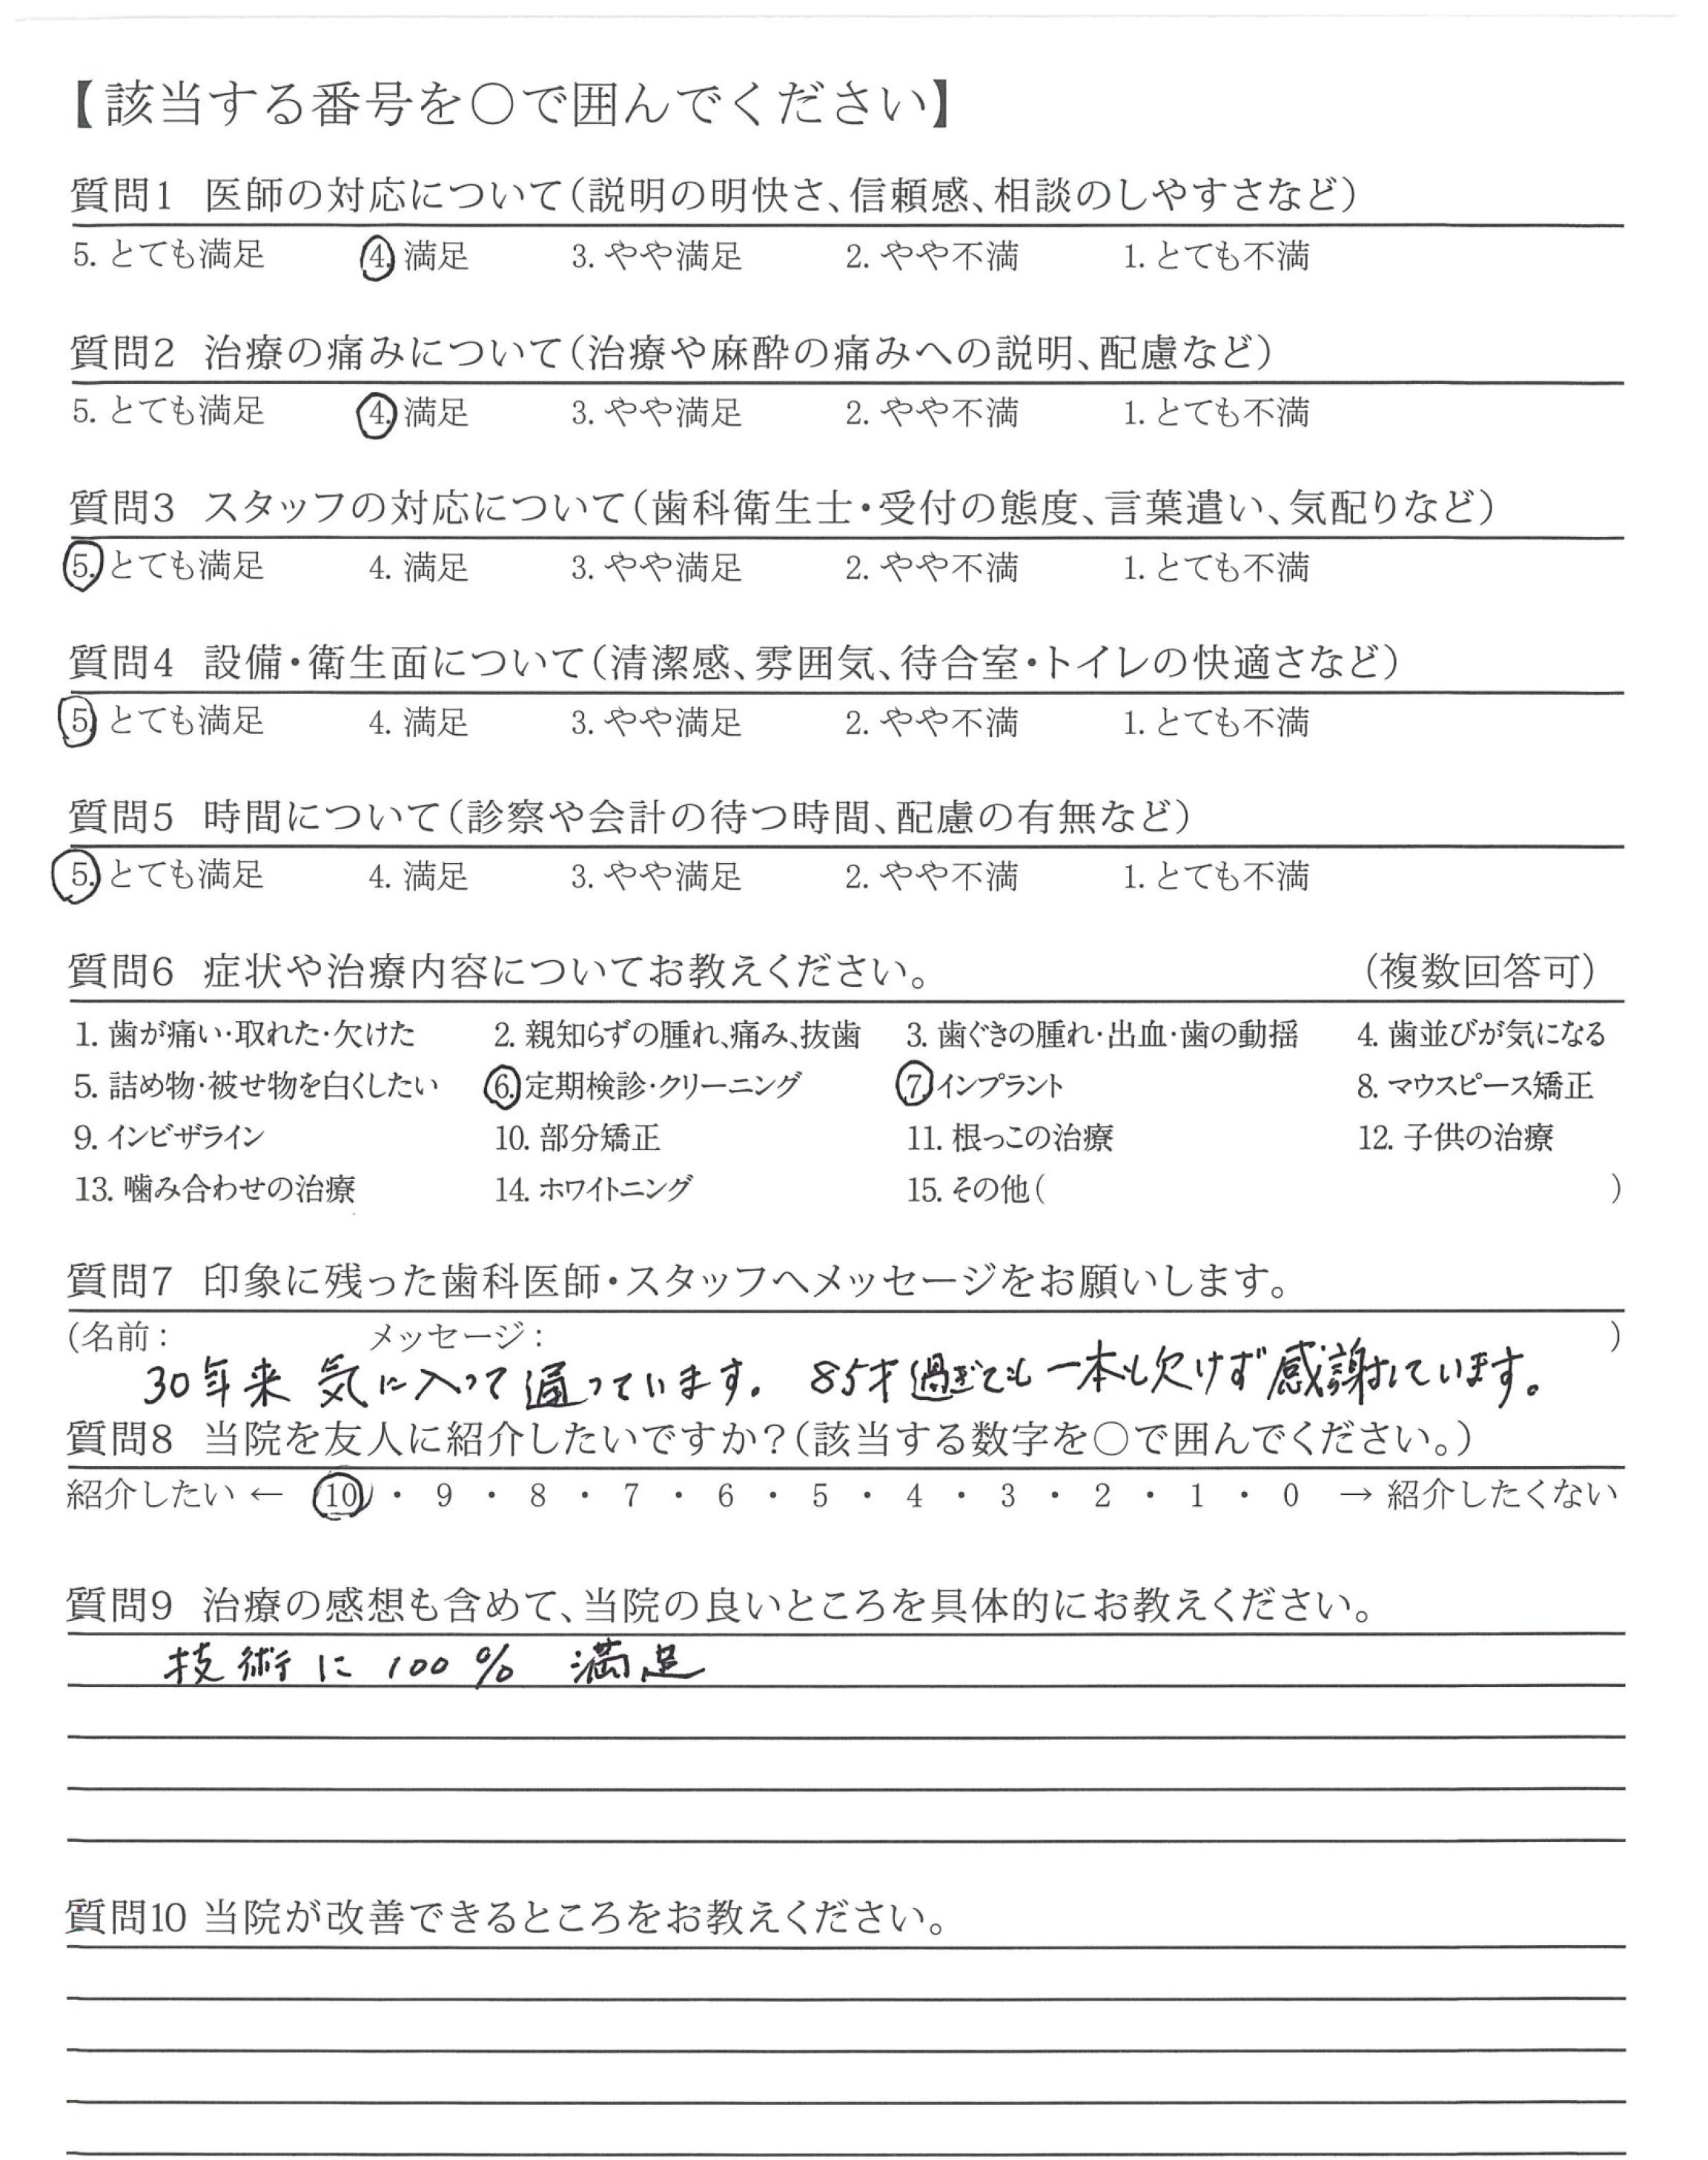 【該当する番号を○で囲んでください】
質問1 医師の対応について(説明の明快さ、信頼感、相談のしやすさなど)
5. とても満足 4. 満足 3. やや満足 2. やや不満 1. とても不満
質問2 治療の痛みについて(治療や麻酔の痛みへの説明、配慮など)
5. とても満足 4. 満足 3. やや満足 2. やや不満 1. とても不満
質問3 スタッフの対応について(歯科衛生士・受付の態度、言葉遣い、気配りなど)
5. とても満足 4. 満足 3. やや満足 2. やや不満 1. とても不満
質問4 設備・衛生面について(清潔感、雰囲気、待合室・トイレの快適さなど)
5. とても満足 4. 満足 3. やや満足 2. やや不満 1. とても不満
質問5 時間について(診察や会計の待つ時間、配慮の有無など)
5. とても満足 4. 満足 3. やや満足 2. やや不満 1. とても不満
質問6 症状や治療内容についてお教えください。 (複数回答可)
1. 歯が痛い・取れた・欠けた 2. 親知らずの腫れ、痛み、抜歯 3. 歯ぐきの腫れ・出血・歯の動揺 4. 歯並びが気になる
5. 詰め物・被せ物を白くしたい 6. 定期検診・クリーニング 7. インプラント 8. マウスピース矯正
9. インビザライン 10. 部分矯正 11. 根っこの治療 12. 子供の治療
13. 噛み合わせの治療 14. ホワイトニング 15. その他( )
質問7 印象に残った歯科医師・スタッフへメッセージをお願いします。
(名前: メッセージ: )
30年来 気に入って通っています。 85才過ぎても一本も欠けず感謝しています。
質問8 当院を友人に紹介したいですか?(該当する数字を○で囲んでください。)
紹介したい ← 10 ・ 9 ・ 8 ・ 7 ・ 6 ・ 5 ・ 4 ・ 3 ・ 2 ・ 1 ・ 0 → 紹介したくない
質問9 治療の感想も含めて、当院の良いところを具体的にお教えください。
技術に 100% 満足
質問10 当院が改善できるところをお教えください。